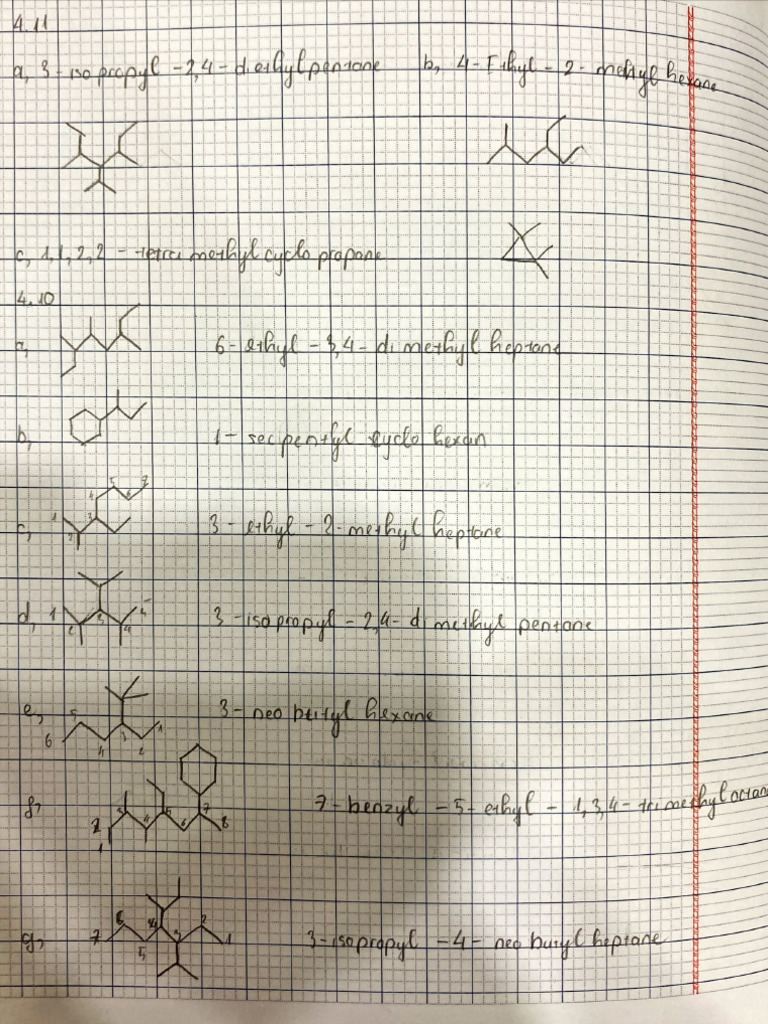 4.11
a, 3-isopropyl-2,4-diethylpentane b, 4-Ethyl-2-methylhexane
c, 1,1,2,2-tetramethylcyclopropane
4.10
a, 6-ethyl-3,4-dimethylheptane
b, 1-secpentyl cyclohexan
4 5 6 7
c, 1 2 3 3-ethyl-2-methylheptane
d, 1 2 3 4 5 3-isopropyl-2,4-dimethylpentane
e, 6 5 4 3 2 1 3-neobutyl hexane
f, 1 2 3 4 5 6 7 8 7-benzyl-5-ethyl-1,3,4-trimethyloctan
g, 7 6 5 4 3 2 1 3-isopropyl-4-neobutylheptane